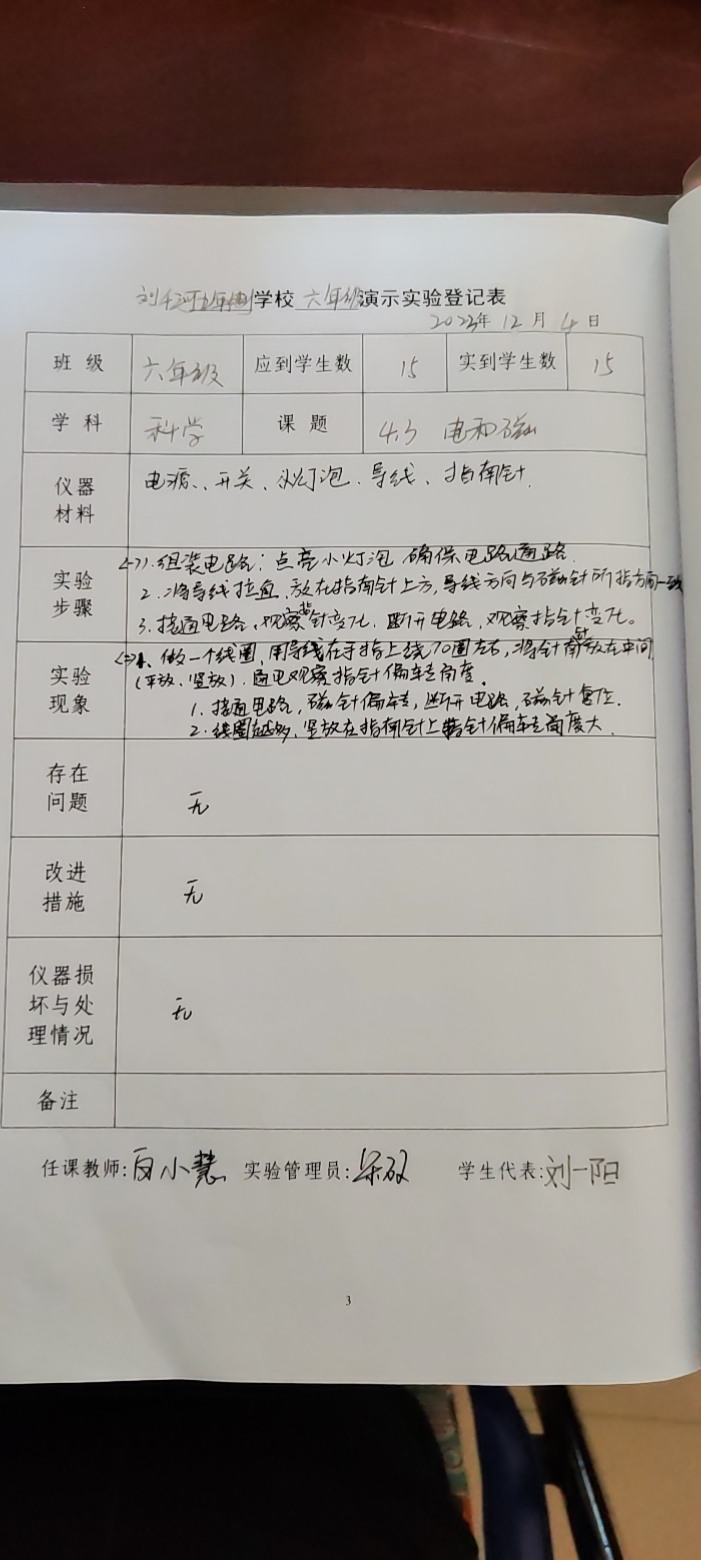 刘 河九年制学校 六年级演示实验登记表
2023年 12 月 4 日
班 级 六年级 应到学生数 15 实到学生数 15
学 科 科学 课 题 4.3 电和磁
仪器
材料
电源、开关、小灯泡、导线、指南针.
实验
步骤
<1>1.组装电路：点亮小灯泡 确保电路通路.
2.将导线拉直,放在指南针上方,导线方向与磁针所指方向一致
3.接通电路,观察指针变化,断开电路,观察指针变化。
实验
现象
<2>1、做一个线圈,用导线在手指上绕10圈左右,将指南针放在中间
(平放、竖放).通电观察指针偏转角度.
1.接通电路,磁针偏转,断开电路,磁针复位.
2.线圈越多,竖放在指南针上指针偏转角度大.
存在
问题
无
改进
措施
无
仪器损
坏与处
理情况
无
备注
任课教师: 小慧 实验管理员: 学生代表:刘一阳
3